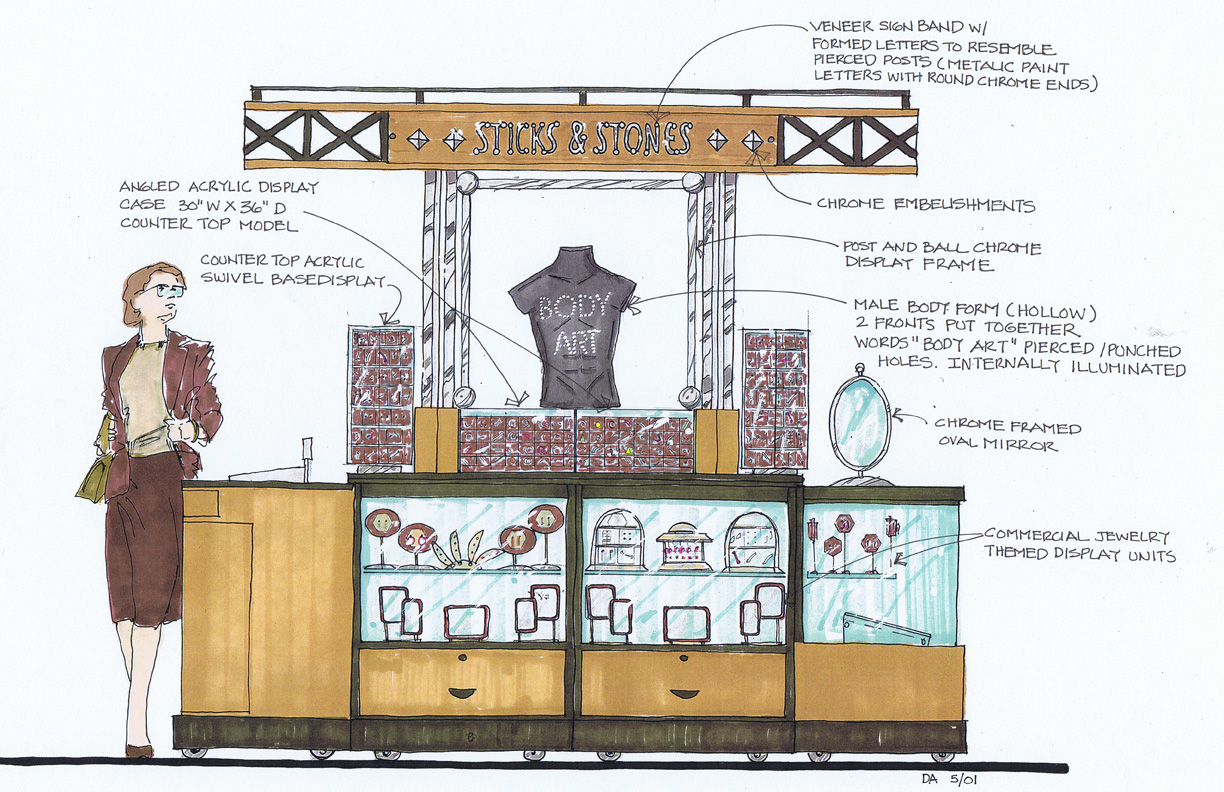 VENEER SIGN BAND W/
FORMED LETTERS TO RESEMBLE
PIERCED POSTS (METALIC PAINT
LETTERS WITH ROUND CHROME ENDS)
STICKS & STONES
ANGLED ACRYLIC DISPLAY
CASE 30" W X 36" D
COUNTER TOP MODEL
CHROME EMBELISHMENTS
COUNTER TOP ACRYLIC
SWIVEL BASEDISPLAY
POST AND BALL CHROME
DISPLAY FRAME
BODY
ART
MALE BODY FORM (HOLLOW)
2 FRONTS PUT TOGETHER
WORDS "BODY ART" PIERCED/PUNCHED
HOLES. INTERNALLY ILLUMINATED
CHROME FRAMED
OVAL MIRROR
COMMERCIAL JEWELRY
THEMED DISPLAY UNITS
DA 5/01